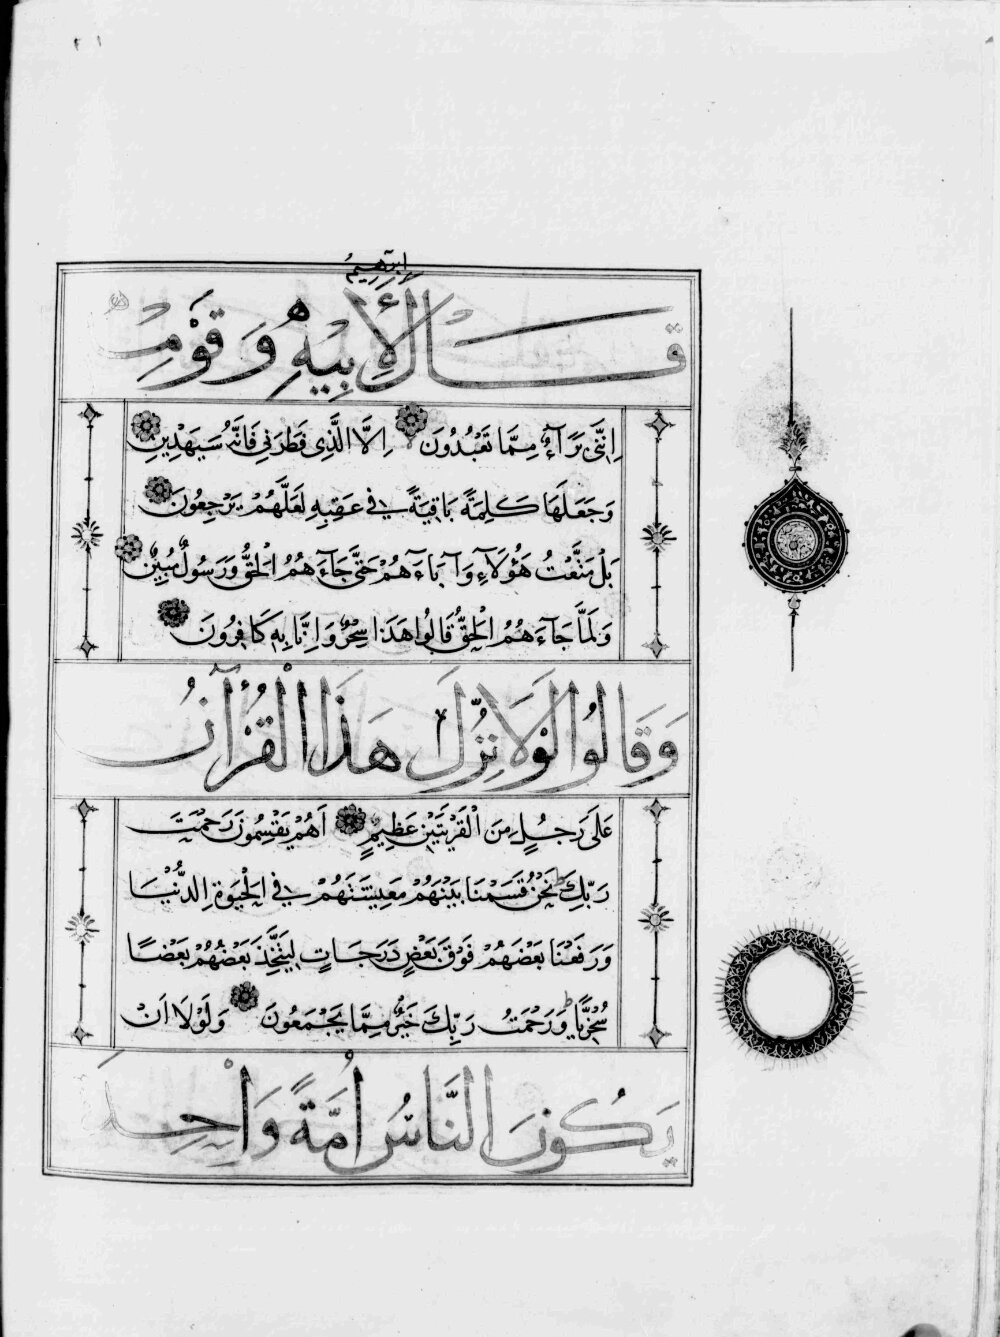 ٢١
إبرهيم
قَالَ لِأَبِيهِ وَقَوْمِهِ
إِنَّنِي بَرَآءٌ مِمَّا تَعْبُدُونَ إِلَّا الَّذِي فَطَرَنِي فَإِنَّهُ سَيَهْدِينِ
وَجَعَلَهَا كَلِمَةً بَاقِيَةً فِي عَقِبِهِ لَعَلَّهُمْ يَرْجِعُونَ
بَلْ مَتَّعْتُ هَؤُلَآءِ وَآبَاءَهُمْ حَتَّى جَآءَهُمُ الْحَقُّ وَرَسُولٌ مُبِينٌ
وَلَمَّا جَآءَهُمُ الْحَقُّ قَالُوا هَذَا سِحْرٌ وَإِنَّا بِهِ كَافِرُونَ
وَقَالُوا لَوْلَا نُزِّلَ هَذَا الْقُرْآنُ
عَلَى رَجُلٍ مِنَ الْقَرْيَتَيْنِ عَظِيمٍ أَهُمْ يَقْسِمُونَ رَحْمَتَ
رَبِّكَ نَحْنُ قَسَمْنَا بَيْنَهُمْ مَعِيشَتَهُمْ فِي الْحَيَوةِ الدُّنْيَا
وَرَفَعْنَا بَعْضَهُمْ فَوْقَ بَعْضٍ دَرَجَاتٍ لِيَتَّخِذَ بَعْضُهُمْ بَعْضًا
سُخْرِيًّا وَرَحْمَتُ رَبِّكَ خَيْرٌ مِمَّا يَجْمَعُونَ وَلَوْلَا أَنْ
يَكُونَ النَّاسُ أُمَّةً وَاحِدَةً